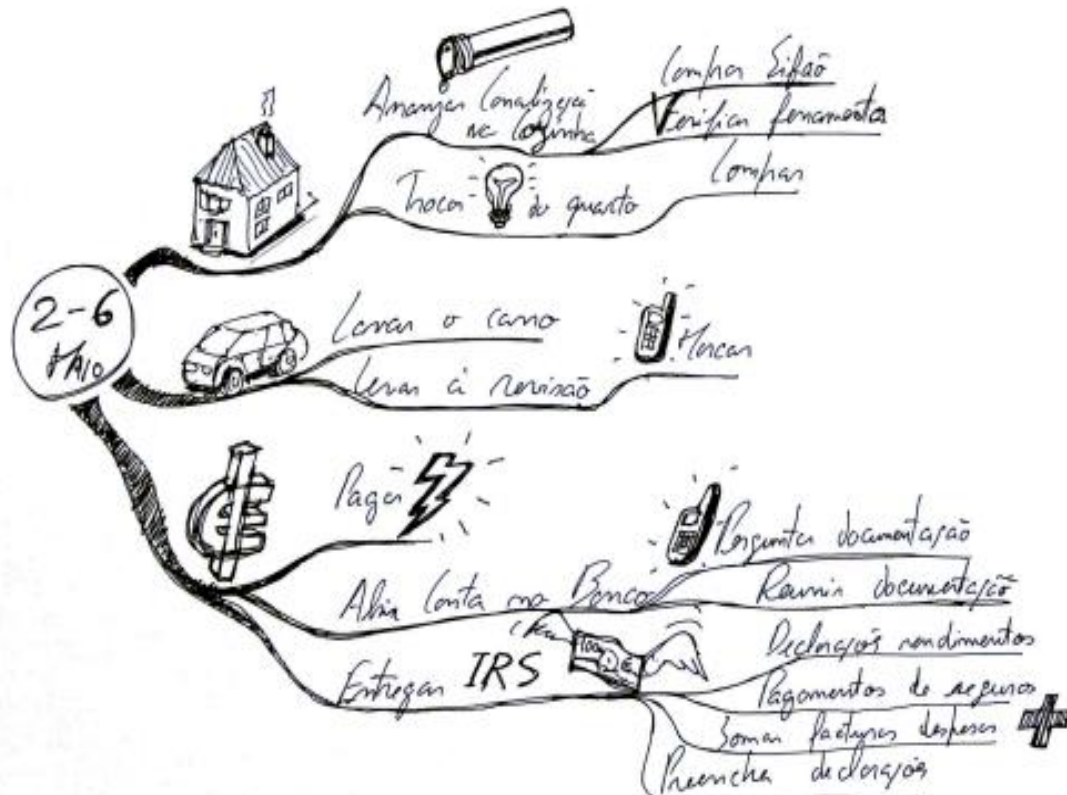 2-6
MAIO
Arranjar Canalização
na Cozinha
Comprar Sifão
Verificar ferramentas
Trocar do quarto
Comprar
Lavar o carro
Levar à revisão
Marcar
Pagar
Abrir Conta no Banco
Perguntar documentação
Reunir documentação
Entregar IRS
100
Declarações rendimentos
Pagamentos de seguros
Somar facturas despesas
Preencher declarações